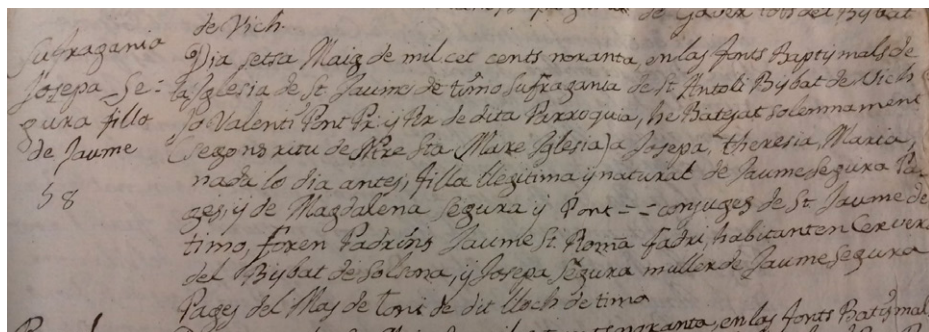 de Gaver tots del Bisbat
de Vich.
Sufragania
Josepa Se=
gura filla
de Jaume
58
Dia setse Maig de mil set cents noranta, en las fonts Baptismals de
la Iglesia de St. Jaume de timo Sufragania de St. Antoli Bisbat de Vich
Jo Valenti Pont Pr. y Rr. de dita Parroquia, he Batejat solemnament
(segons ritu de Nre Sta Mare Iglesia) a Josepa, Theresia, Maria,
nada lo dia antes, filla llegitima y natural de Jaume Segura Pa-
ges, y de Magdalena Segura y Pont == conjuges de St. Jaume de
timo, foren Padrins Jaume St. Romà fadri, habitant en Cervera
del Bisbat de Solsona, y Josepa Segura muller de Jaume Segura
Pages del Mas de Toni de dit lloch de timo
noranta, en las fonts Batismal